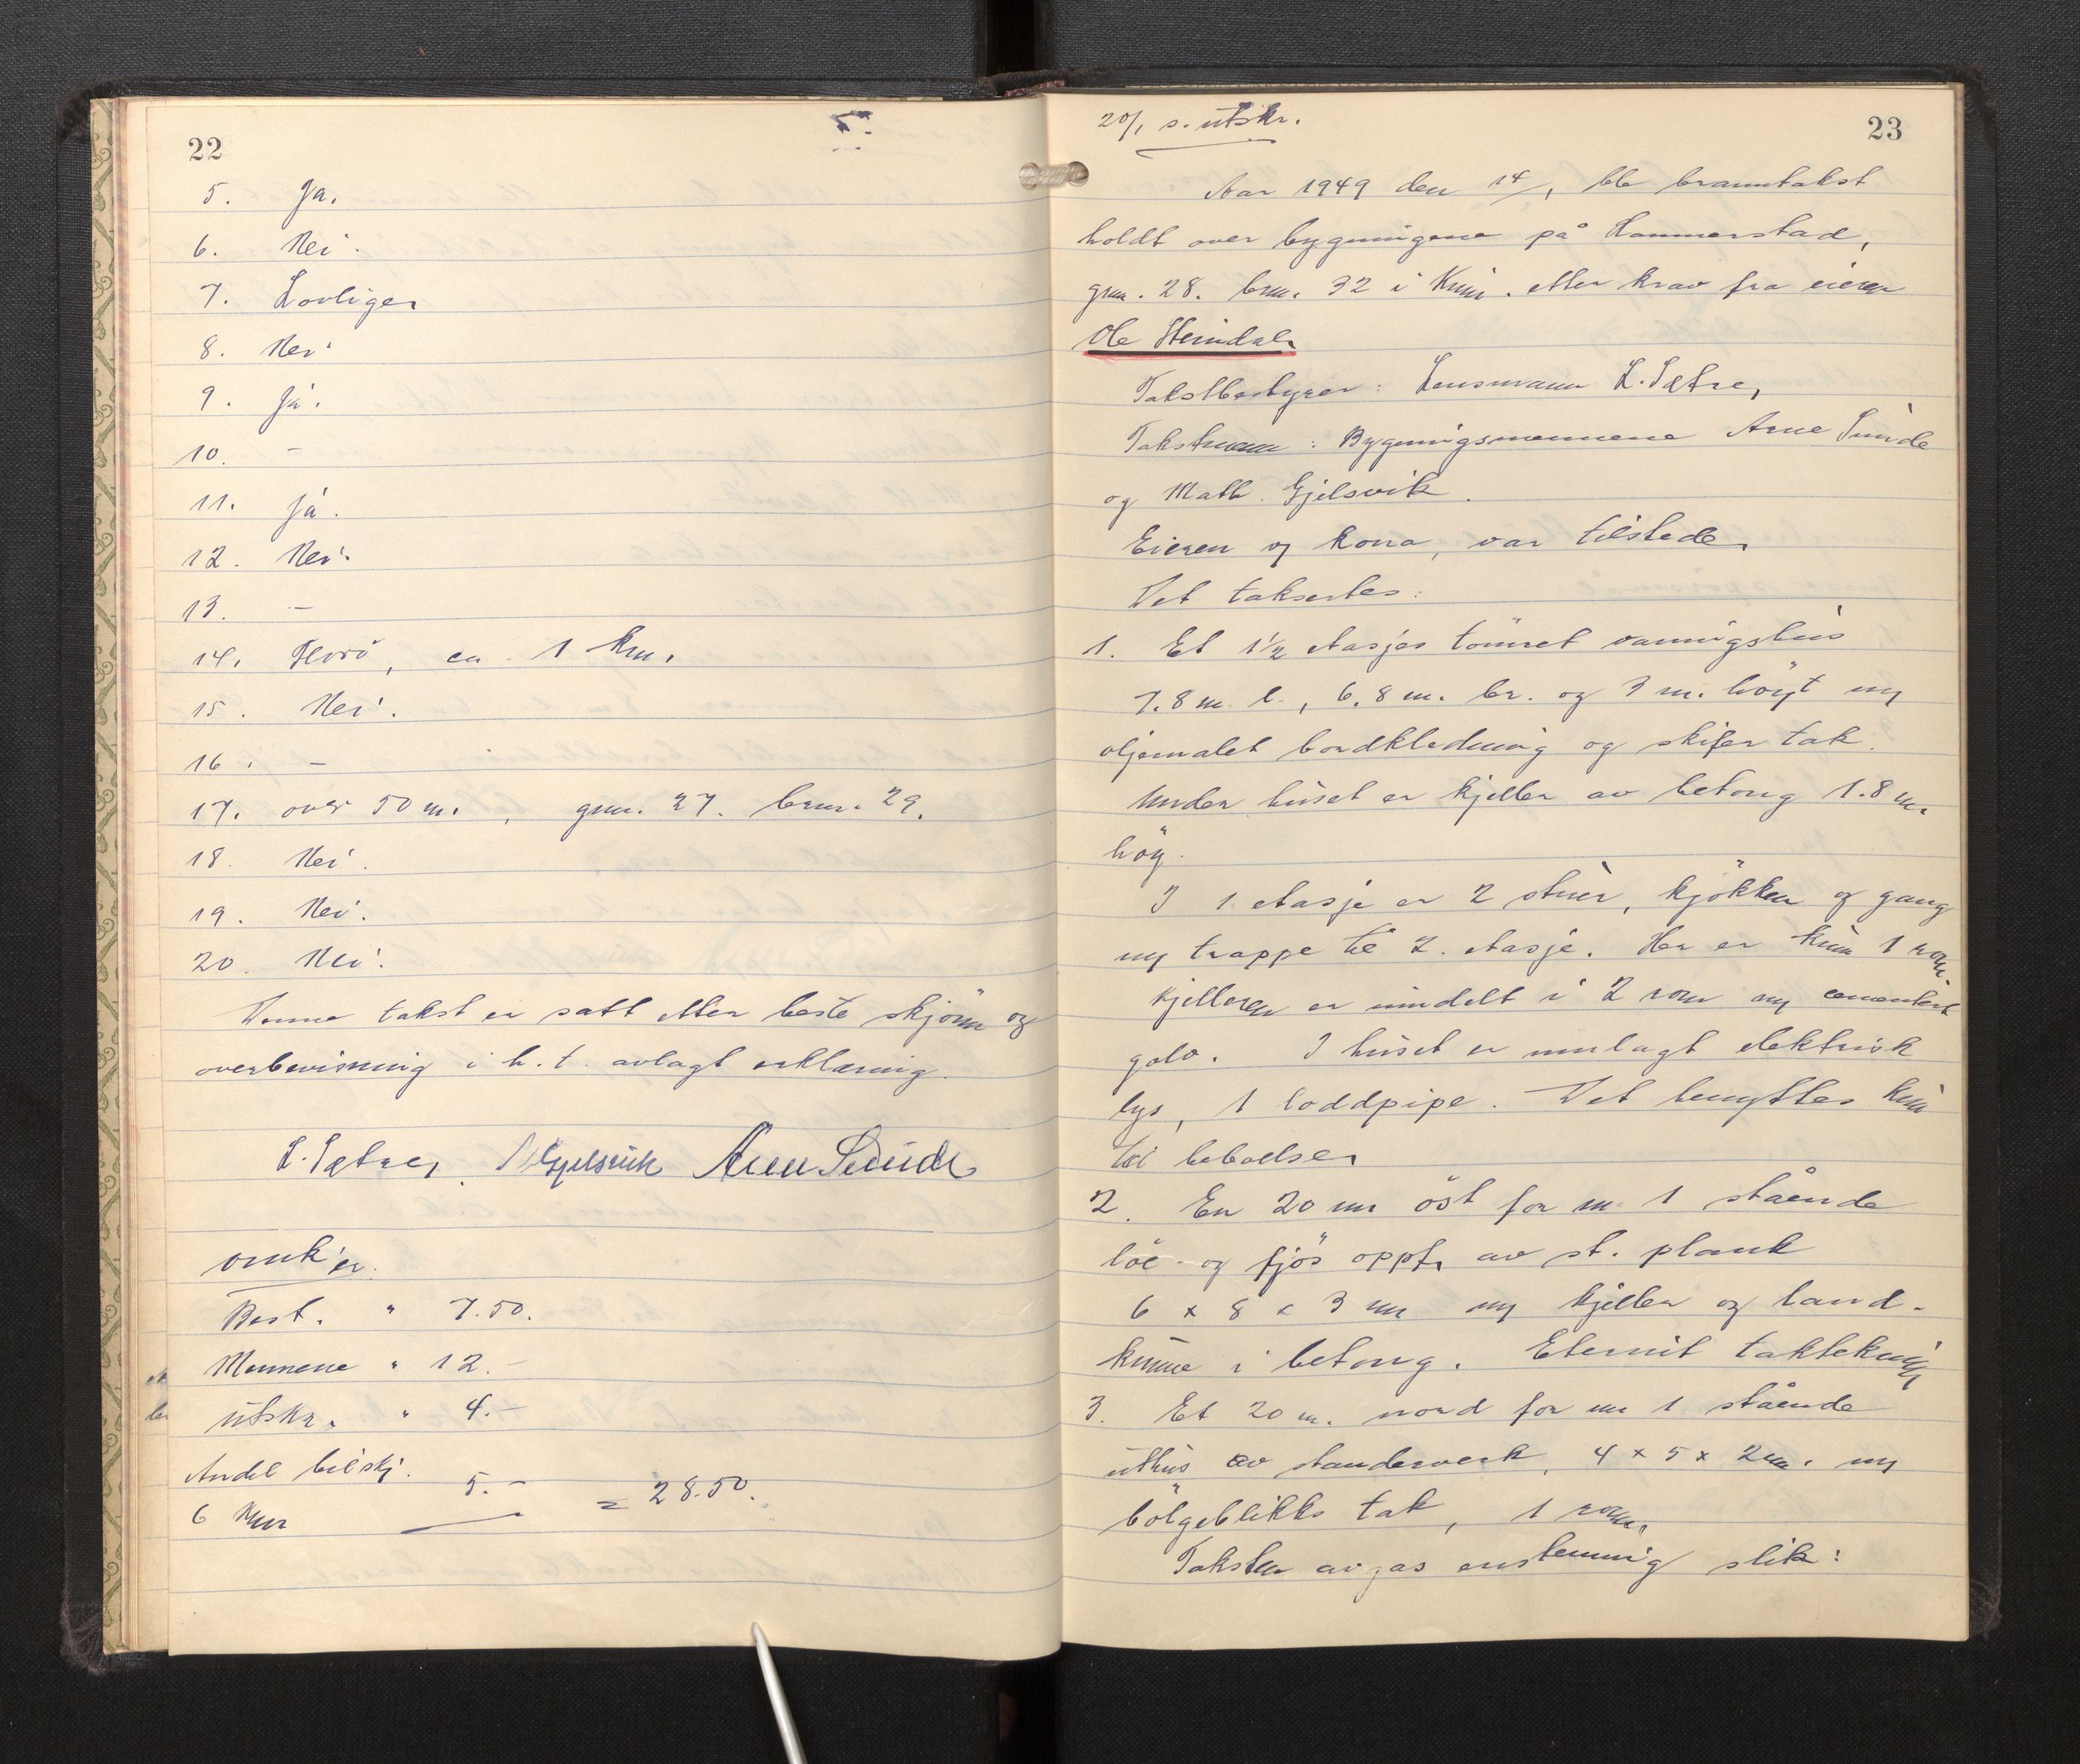 22
5. Ja.
6. Nei.
7. Lovlige.
8. Nei.
9. Ja.
10. –
11. Ja.
12. Nei.
13. –
14. Florö, ca. 1 km.
15. Nei.
16. –
17. over 50 m., gnr. 27. brnr. 29.
18. Nei.
19. Nei.
20. Nei.
Denne takst er satt etter beste skjönn og
overbevisning i h.t. avlagt erklæring.
L. Sætre, M Gjelsvik Arne Sunde
omk'er.
Best. " 7.50.
Mennene " 12.–
utskr. " 4.–
Andel bilskj.
5.– = 28.50.
6
23
20/1 s. utskr.
Aar 1949 den 14/1 ble branntakst
holdt over bygningene på Hammerstad,
gnr. 28. brnr. 32 i Kinn. etter krav fra eieren
Ole Steindal.
Takstbestyrer: Lensmann L. Sætre,
Takstmenn: Bygningsmennene Arne Sunde
og Math. Gjelsvik.
Eieren og kona, var tilstede.
Det taksertes:
1. Et 1½ etasjes tömret vaaningshus
7.8 m l., 6.8 m. br. og 3 m. höyt m/
oljemalet bordkledning og skifer tak.
Under huset er kjeller av betong 1.8 m.
höy.
I 1. etasje er 2 stuer, kjökken og gang
m/ trappe til 2. etasje. Her er kun 1 rom.
Kjelleren er inndelt i 2 rom m/ cementert
golv. I huset er innlagt elektrisk
lys, 1 loddpipe. Det benyttes kun
til beboelse.
2. En 20 m öst for nr. 1 stående
löe- og fjös oppf. av st. plank
6 x 8 x 3 m m/ kjeller og land-
kumme i betong. Eternit taktekning
3. Et 20 m. nord for nr 1 stående
uthus av standerverk, 4 x 5 x 2 m. m/
bölgeblikks tak, 1 rom.
Taksten avgas enstemmig slik: